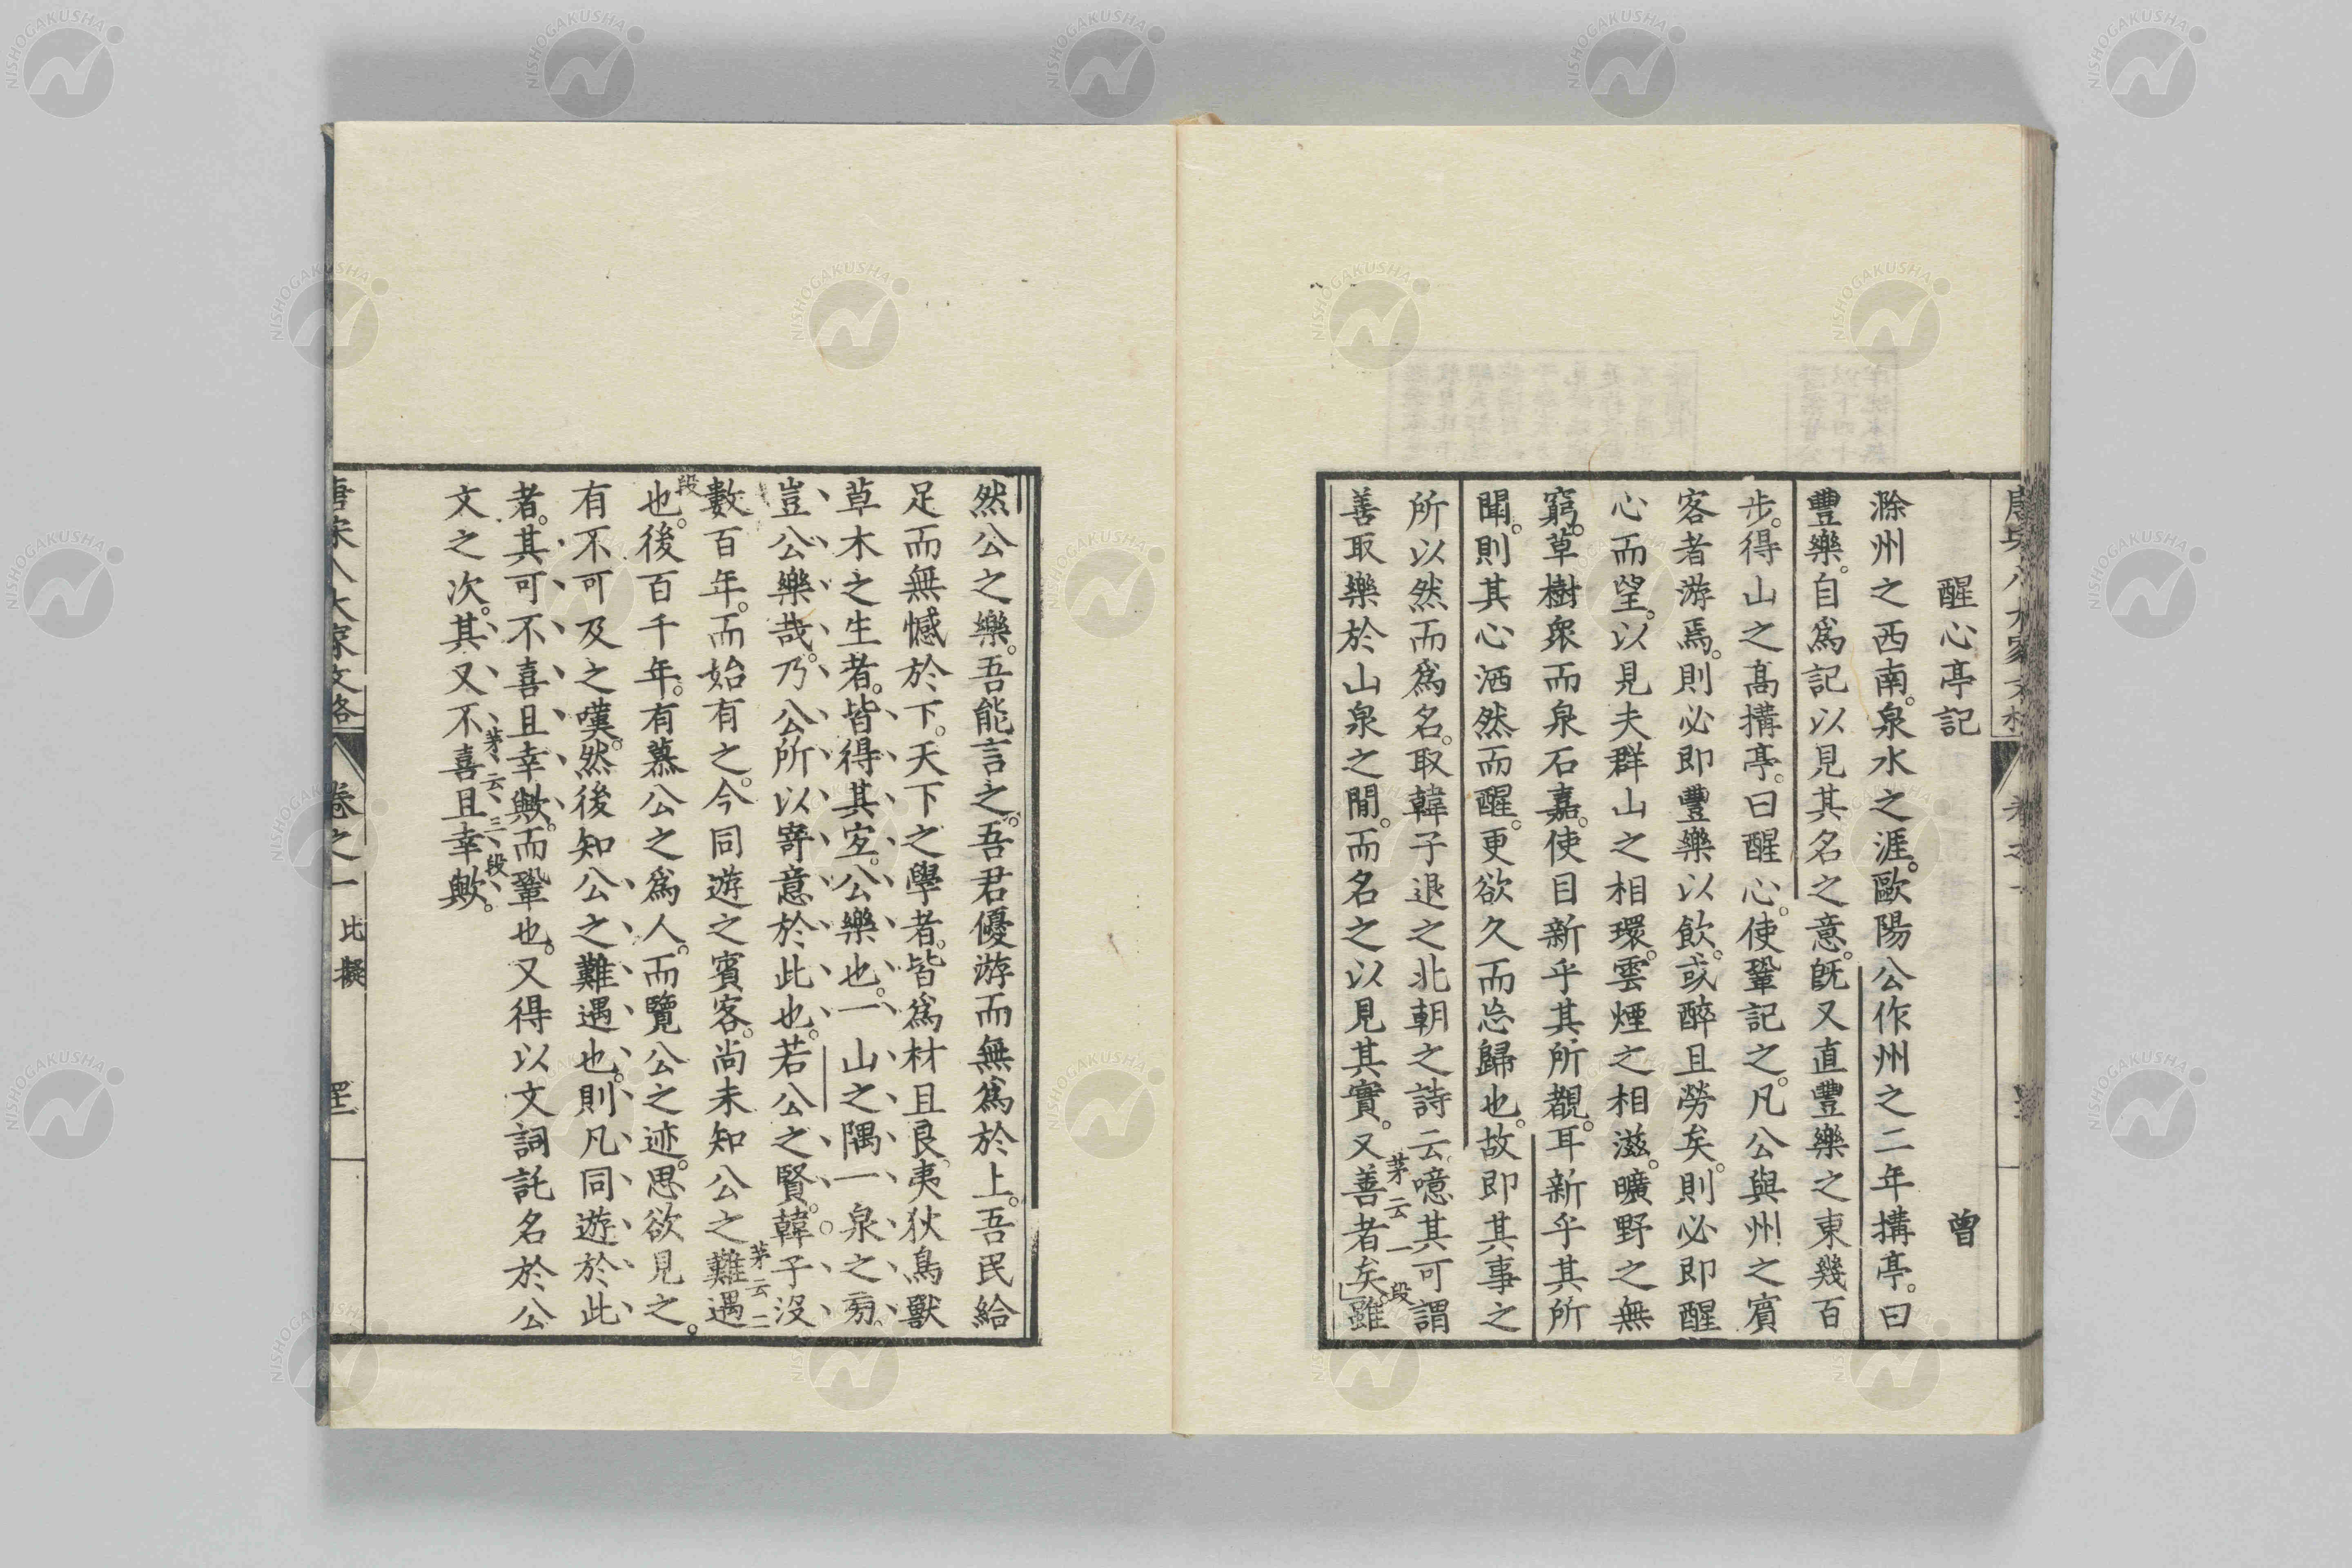 醒心亭記 曾
滁州之西南。泉水之涯。歐陽公作州之二年搆亭。曰
豐樂。自爲記以見其名之意。旣又直豐樂之東幾百
步。得山之高搆亭。曰醒心。使鞏記之。凡公與州之賓
客者游焉。則必即豐樂以飮。或醉且勞矣。則必即醒
心而望。以見夫群山之相環。雲煙之相滋。曠野之無
窮。草樹衆而泉石嘉。使目新乎其所覩。耳新乎其所
聞。則其心洒然而醒。更欲久而忘歸也。故即其事之
所以然而爲名。取韓子退之北朝之詩云。噫其可謂
善取樂於山泉之閒。而名之以見其實。又善者矣。雖
茅云一段
然公之樂。吾能言之。吾君優游而無爲於上。吾民給
足而無憾於下。天下之學者。皆爲材且良。夷狄鳥獸
草木之生者。皆得其宐。公樂也。一山之隅一泉之旁。
豈公樂哉。乃公所以寄意於此也。若公之賢。韓子沒
數百年。而始有之。今同遊之賓客。尚未知公之難遇
茅云二段
也。後百千年。有慕公之爲人。而覽公之迹。思欲見之。
有不可及之嘆。然後知公之難遇也。則凡同遊於此
者。其可不喜且幸歟。而鞏也。又得以文詞託名於公
文之次。其又不喜且幸歟。
茅云三段
唐宋八大家文格 卷之一 比擬